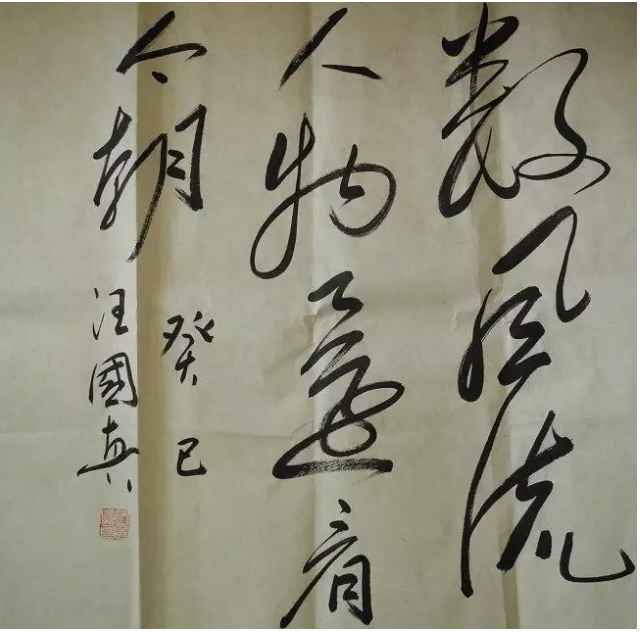 数风流
人物還看
今朝
癸巳
汪國真